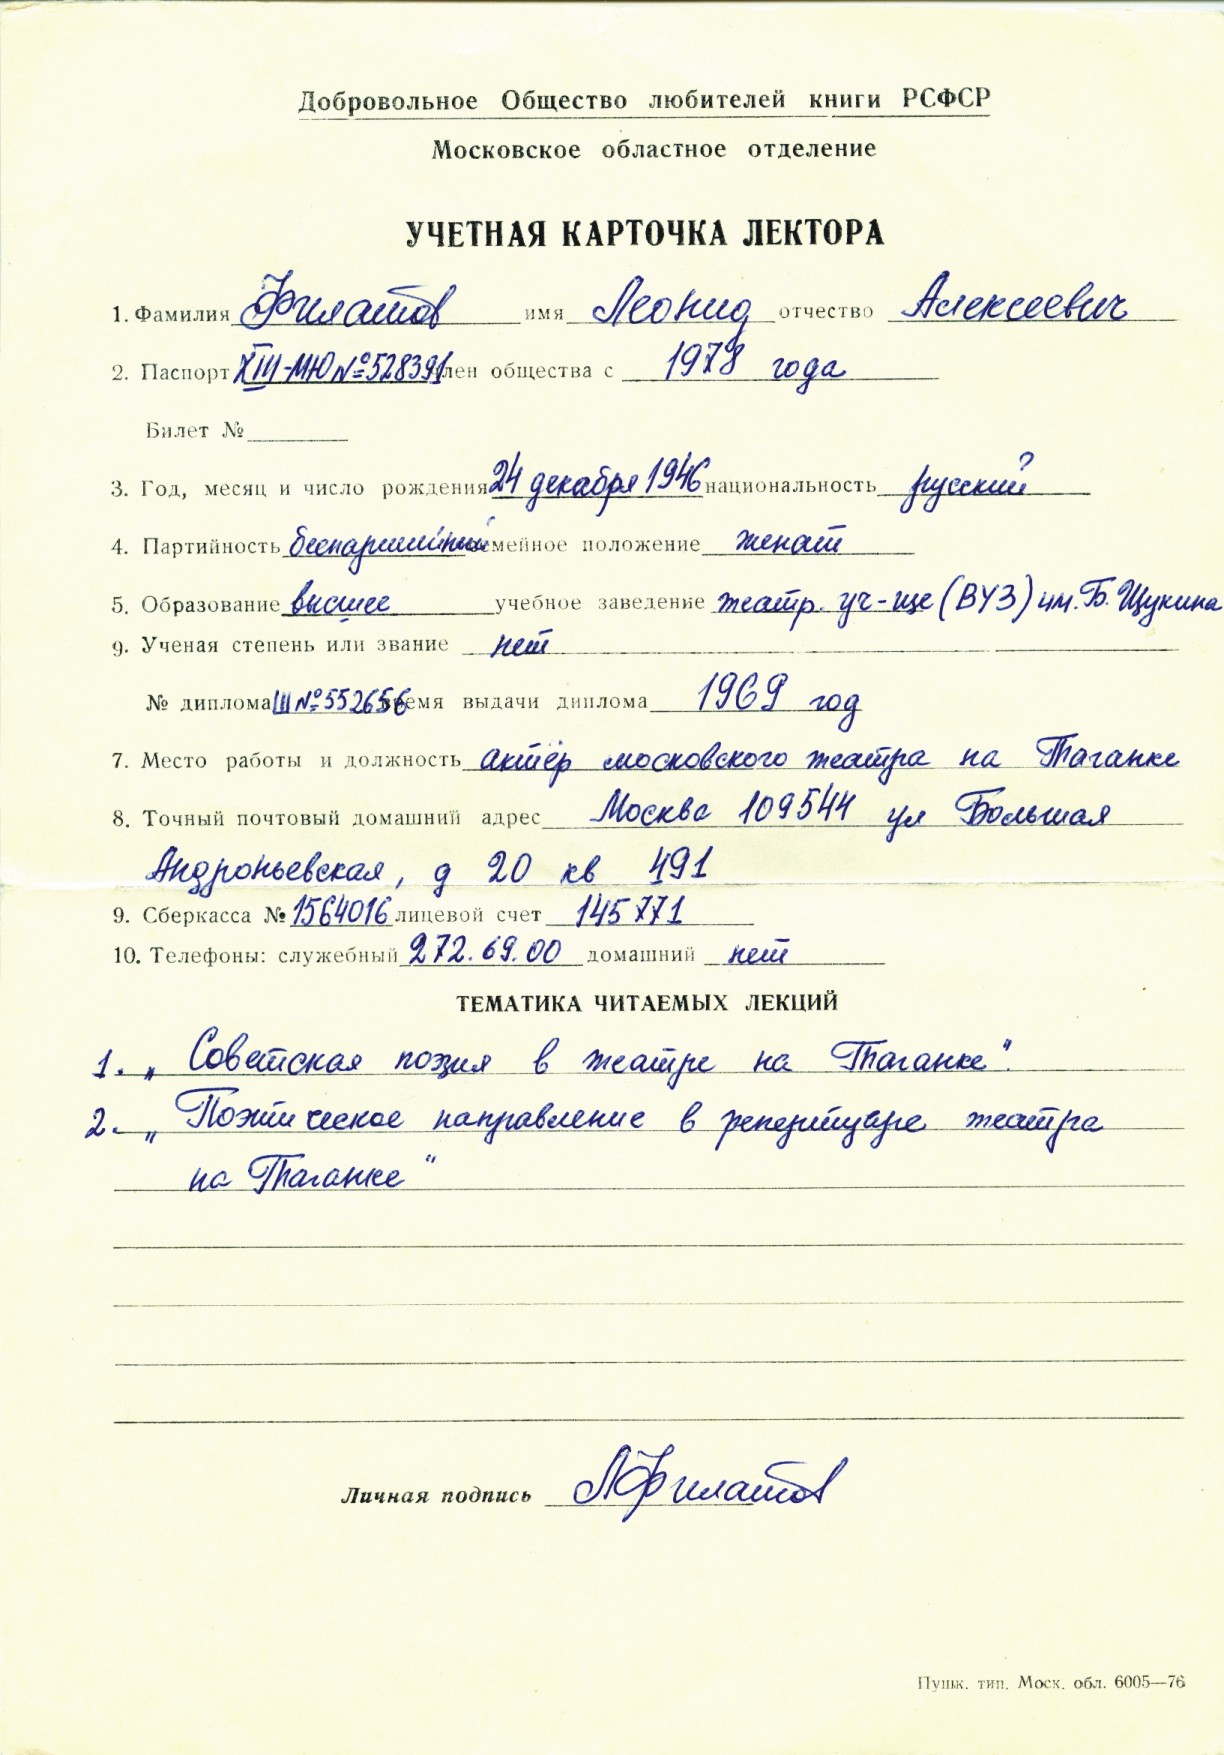 Добровольное Общество любителей книги РСФСР
Московское областное отделение
УЧЕТНАЯ КАРТОЧКА ЛЕКТОРА
1. Фамилия Филатов имя Леонид отчество Алексеевич
2. Паспорт XIII-МЮ №528391 член общества с 1978 года
Билет №
3. Год, месяц и число рождения 24 декабря 1946 национальность русский
4. Партийность беспартийный семейное положение женат
5. Образование высшее учебное заведение театр. уч-ще (ВУЗ) им. Б. Щукина
9. Ученая степень или звание нет
№ диплома Ш №552656 время выдачи диплома 1969 год
7. Место работы и должность актёр московского театра на Таганке
8. Точный почтовый домашний адрес Москва 109544 ул Большая
Андроньевская, д 20 кв 491
9. Сберкасса № 1564016 лицевой счет 145771
10. Телефоны: служебный 272.69.00 домашний нет
ТЕМАТИКА ЧИТАЕМЫХ ЛЕКЦИЙ
1. „Советская поэзия в театре на Таганке".
2. „Поэтическое направление в репертуаре театра
на Таганке"
Личная подпись ЛФилатов
Пушк. тип. Моск. обл. 6005—76